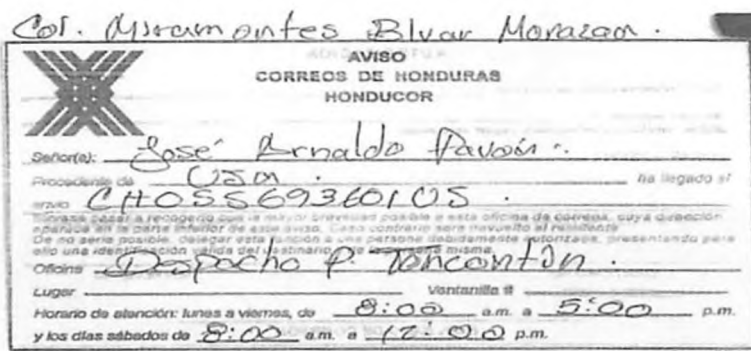 Col. Miramontes Blvar Morazan.
AVISO
CORREOS DE HONDURAS
HONDUCOR
Señor(a): José Arnaldo Pavón.
Procedente de USA. ha llegado el
envío CH055693601US.
Sírvase pasar a recogerlo con la mayor brevedad posible a esta oficina de correos, cuya dirección
aparece en la parte inferior de este aviso. Caso contrario será devuelto al remitente
De no serle posible, delegar esta función a una persona debidamente autorizada, presentando para
ello una identificación válida del destinatario y de la persona misma.
Oficina Despacho P. Toncontín.
Lugar Ventanilla #
Horario de atención: lunes a viernes, de 8:00 a.m. a 5:00 p.m.
y los días sábados de 8:00 a.m. a 12:00 p.m.